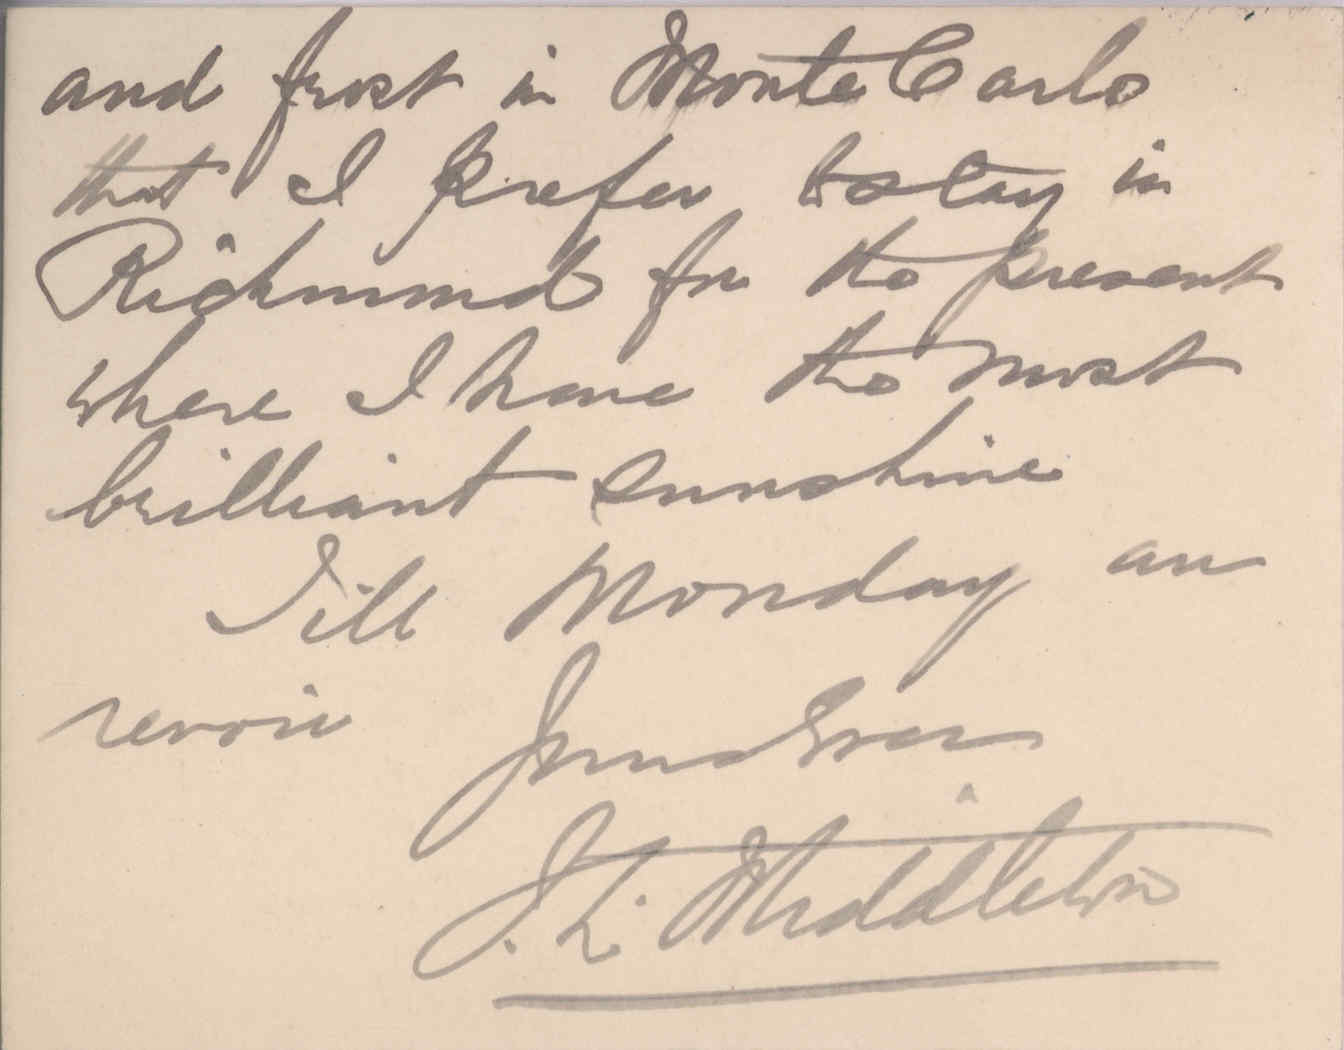 and frost in Monte Carlo
that I prefer to stay in
Richmond for the present
where I have the most
brilliant sunshine
Till Monday au
revoir Yours Ever
J. L. Middleton